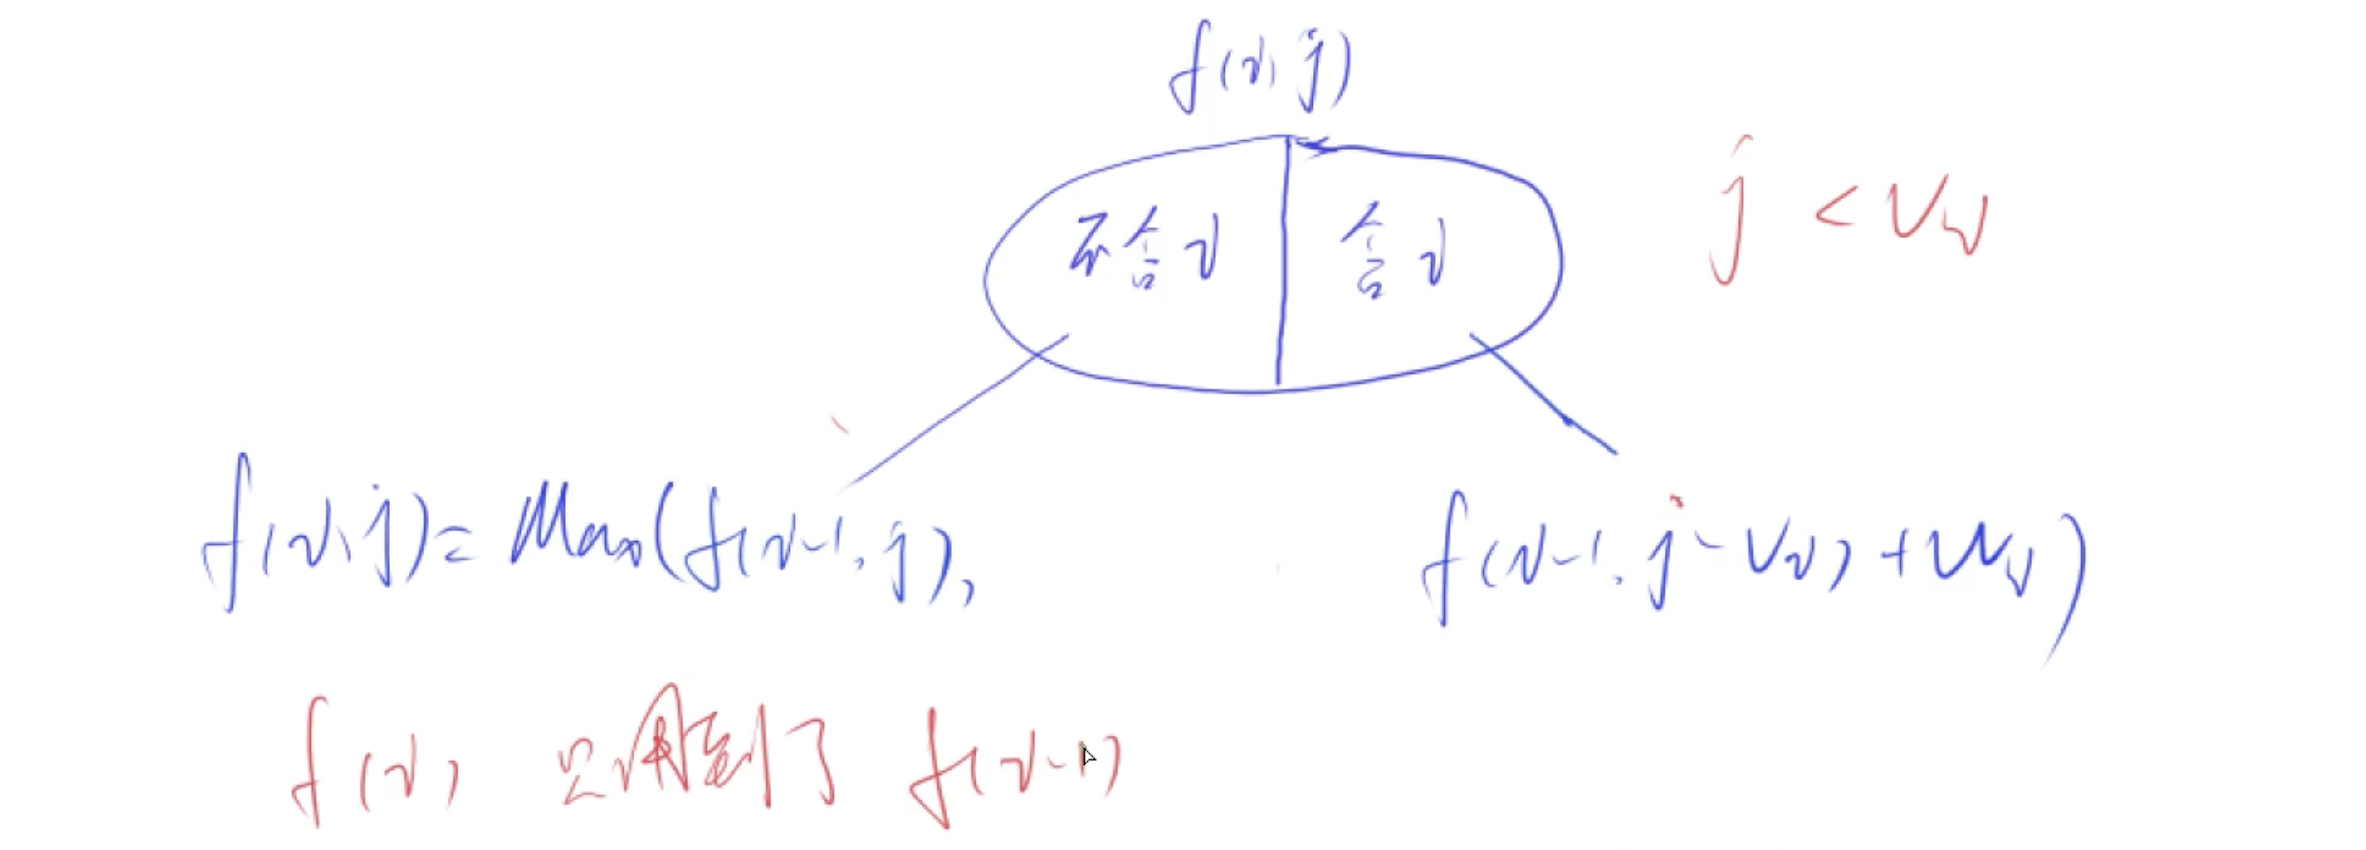 f(i, j)
不含i 含i
j < vi
f(i, j) = Max(f(i-1, j), f(i-1, j-vi) + wi)
f(i) 只用到了 f(i-1)